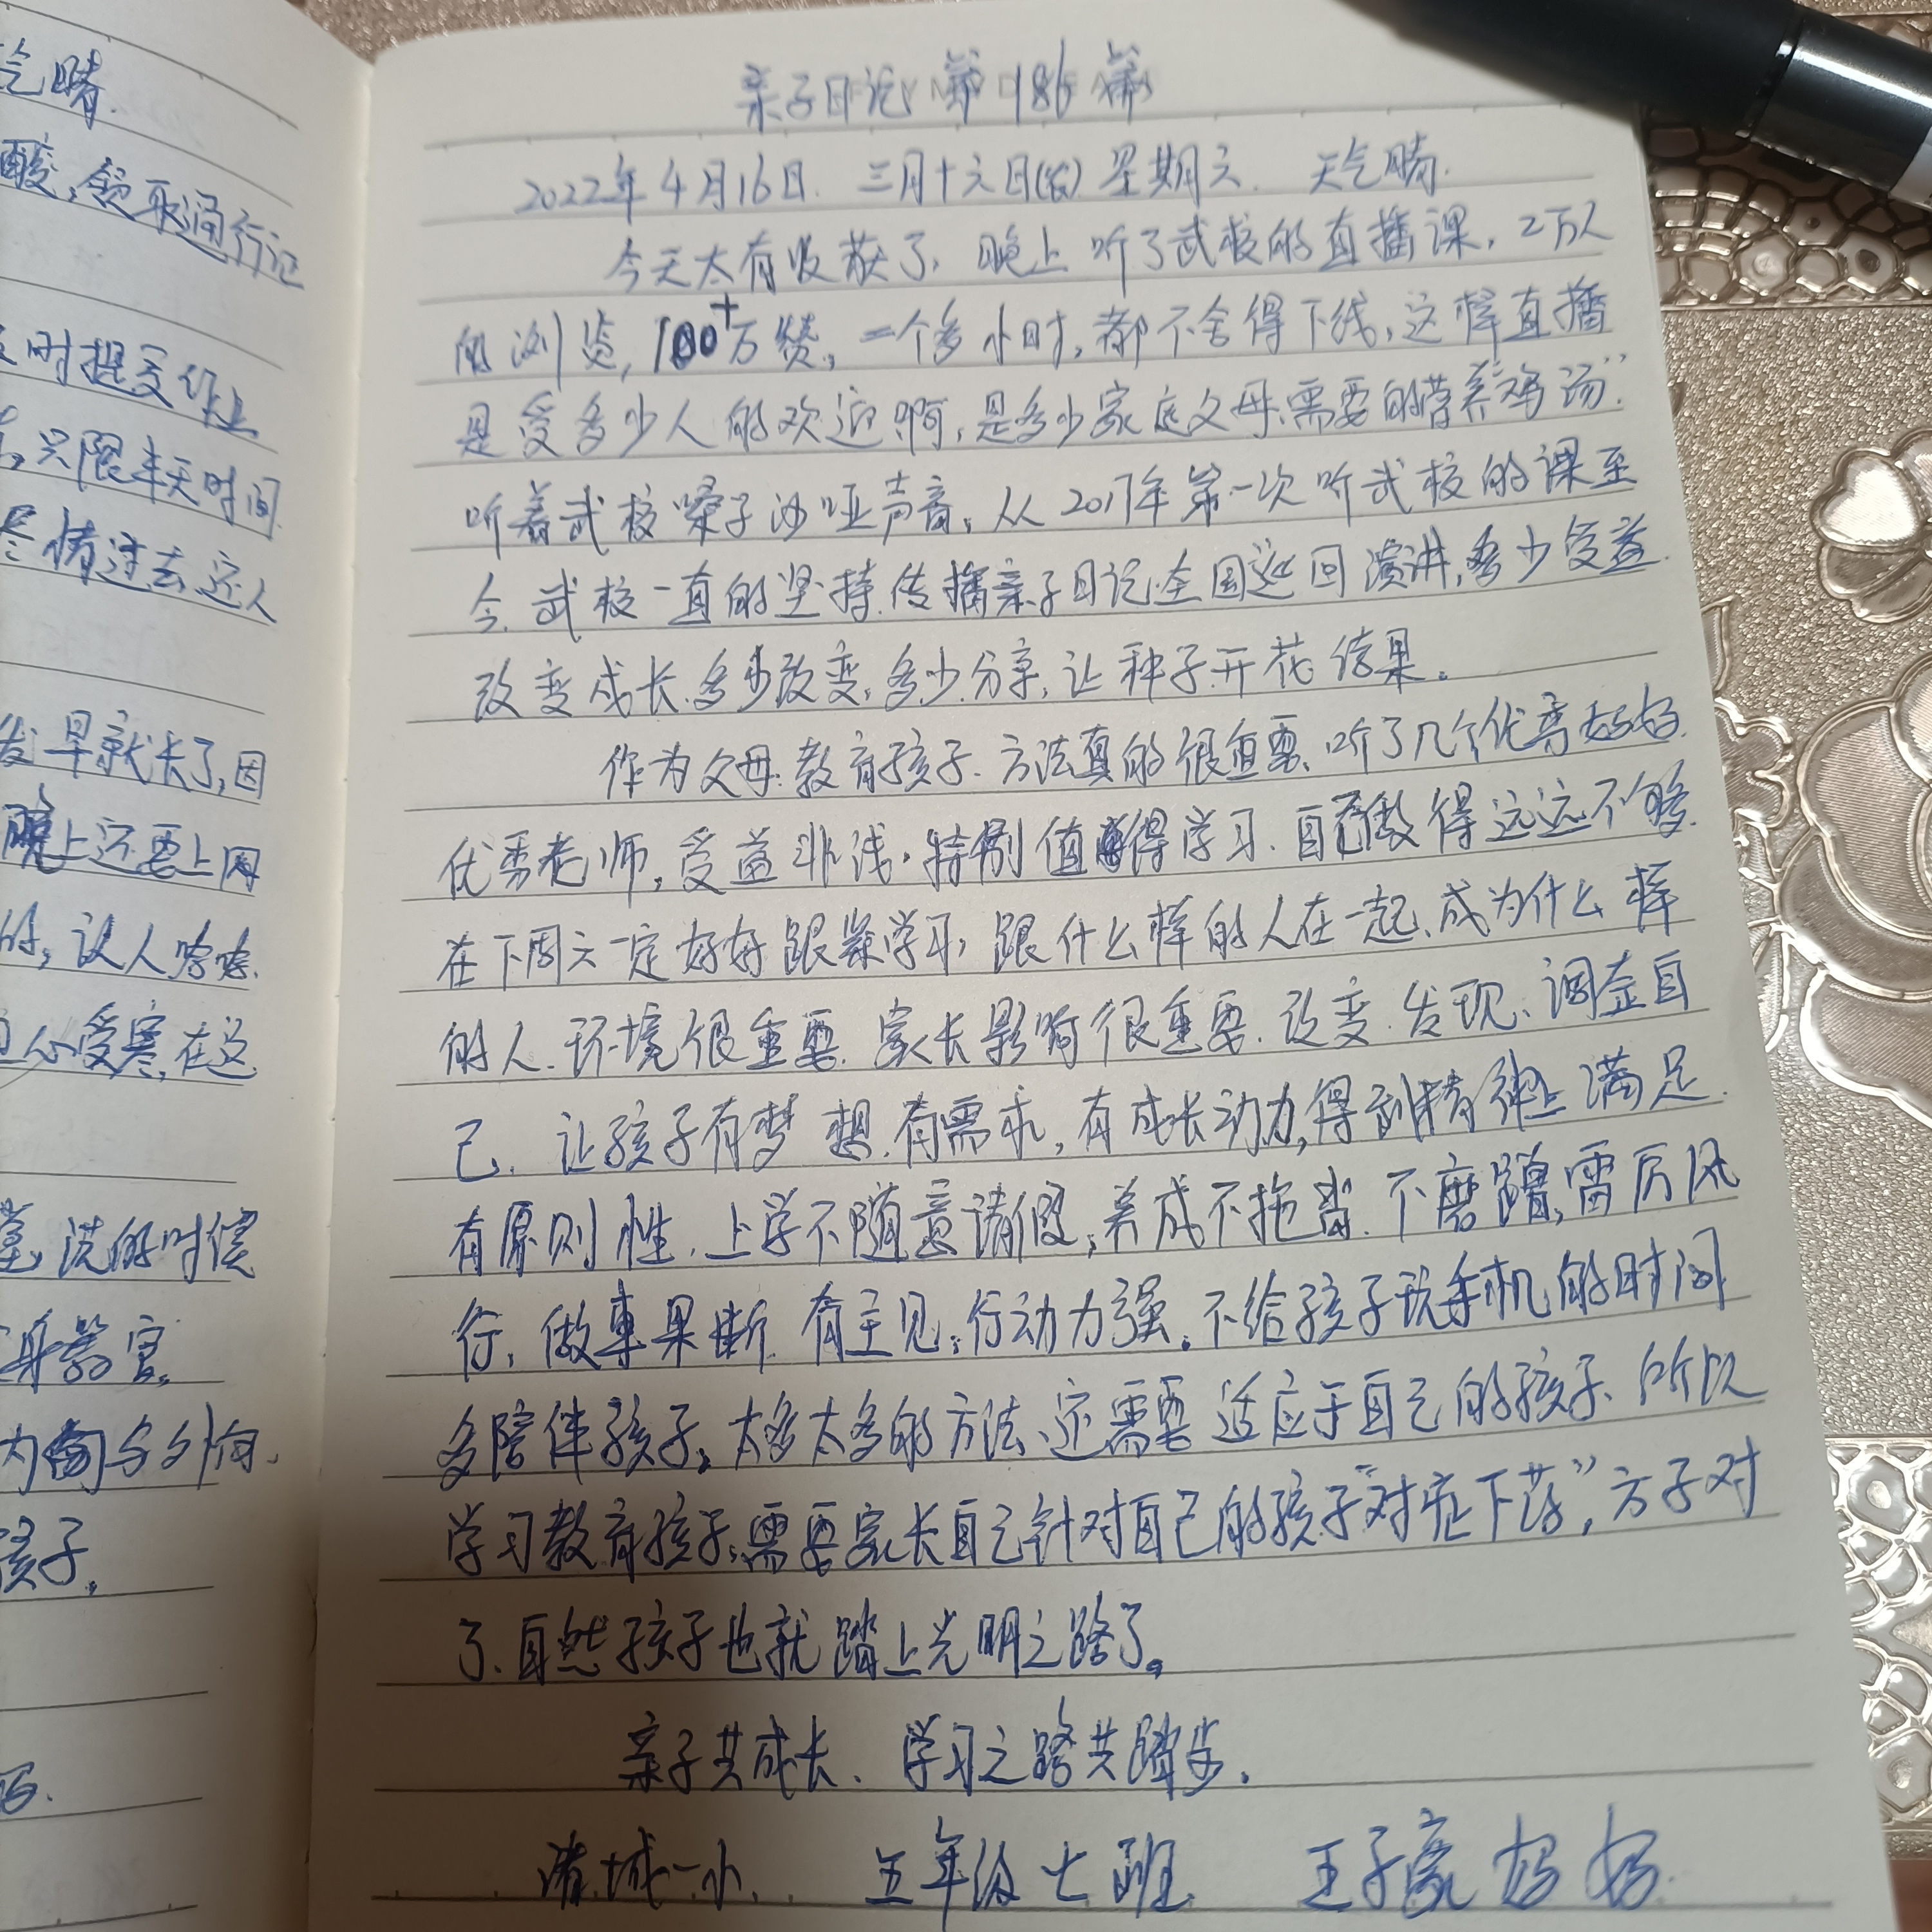 气晴.
酸,领取通行证
时提交作业
只限半天时间.
尽情过去,这人
发早就长了,因
晚上还要上网
的,让人嗦嗦.
心受寒,在这
洗的时候
身教官.
内向与外向.
孩子.
亲子日记 第186篇
2022年4月16日. 三月十六日(农) 星期六. 天气晴.
今天太有收获了,晚上听了武校的直播课,2万人
的浏览,100+万赞,一个多小时,都不舍得下线,这样直播
是受多少人的欢迎啊,是多少家庭父母需要的营养"鸡汤"
听着武校嗓子沙哑声音,从2017年第一次听武校的课至
今.武校一直的坚持.传播亲子日记全国巡回演讲,多少受益.
改变成长.多少改变,多少分享,让种子开花结果.
作为父母.教育孩子.方法真的很重要.听了几个优秀妈妈.
优秀老师,受益非浅.特别值得学习.自己做得远远不够.
在下周六一定好好跟紧学习,跟什么样的人在一起、成为什么样
的人.环境很重要.家长影响很重要.改变.发现、调整自
己.让孩子有梦想.有需求,有成长动力,得到精神上满足.
有原则性.上学不随意请假,养成不拖沓.不磨蹭,雷厉风
行,做事果断.有主见,行动力强.不给孩子玩手机的时间
多陪伴孩子,太多太多的方法、还需要适应于自己的孩子、所以
学习教育孩子,需要家长自己针对自己的孩子"对症下药",方子对
了、自然孩子也就踏上光明之路了。
亲子共成长、学习之路共踏步.
诸城一小. 五年级七班 王子豪妈妈.